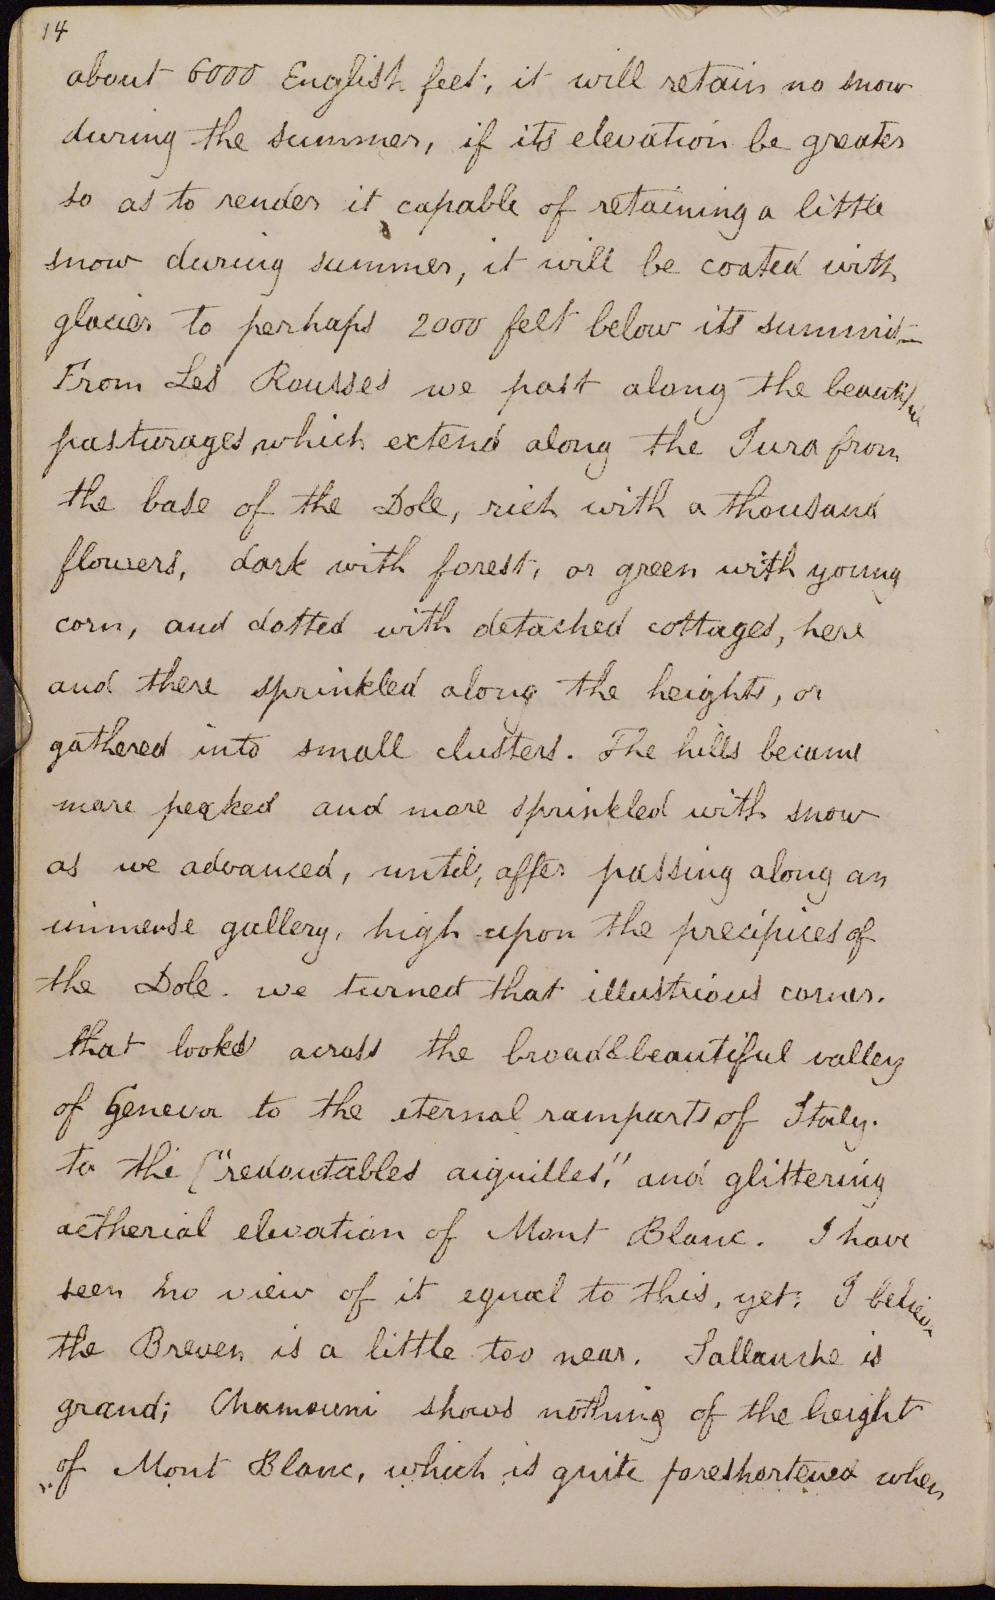 14
about 6000 English feet; it will retain no snow
during the summer, if its elevation be greater
so as to render it capable of retaining a little
snow during summer, it will be coated with
glacier to perhaps 2000 feet below its summit.—
From Les Rousses we past along the beautiful
pasturages, which extend along the Jura from
the base of the Dole, rich with a thousand
flowers, dark with forest, or green with young
corn, and dotted with detached cottages, here
and there sprinkled along the heights, or
gathered into small clusters. The hills became
more peaked and more sprinkled with snow
as we advanced, until, after passing along an
immense gallery, high upon the precipices of
the Dole. we turned that illustrious corner.
that looks across the broad & beautiful valley
of Geneva to the eternal ramparts of Italy.
to the ("redoutables aiguilles," and glittering
aetherial elevation of Mont Blanc. I have
seen no view of it equal to this, yet: I believe
the Breven is a little too near. Sallanche is
grand; Chamouni shows nothing of the height
of Mont Blanc, which is quite foreshortened when